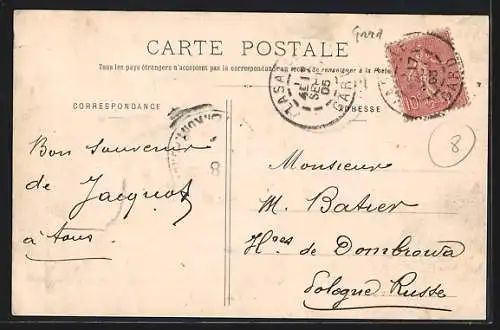 Gard
CARTE POSTALE
Tous les pays étrangers n'acceptent pas la correspondance au recto, se renseigner à la Poste
CORRESPONDANCE
ADRESSE
GARD
05
8
Bon souvenir
de Jacquot
à tous
Monsieur
M. Batier
H^ces de Dombrowa
Pologne Russe